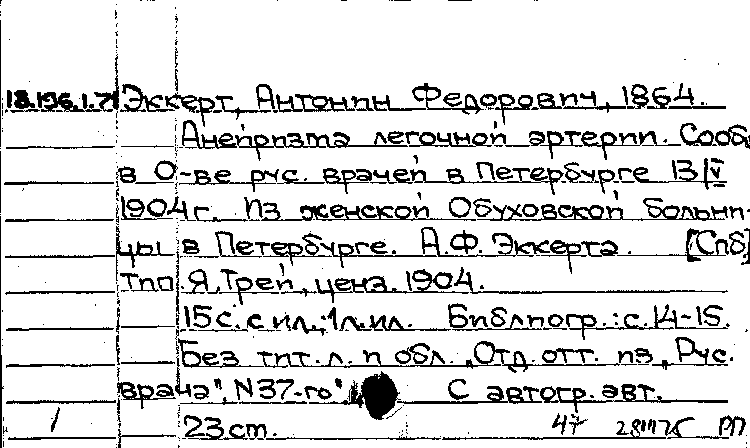 18.196.1.71 Эккерт, Антонин Федорович, 1864.
Аневризма легочной артерии. Сооб.
в О-ве рус. врачей в Петербурге 13/V
1904 г. Из женской Обуховской больни-
цы в Петербурге. А.Ф. Эккерта. [Спб]
тип. Я. Трей, ценз. 1904.
15 с. с ил.; 1 л. ил. Библиогр.: с. 14-15.
Без тит. л. и обл. „Отд. отт. из „Рус.
врача", N 37-го". С автогр. авт.
1 23 cm. 47 РП